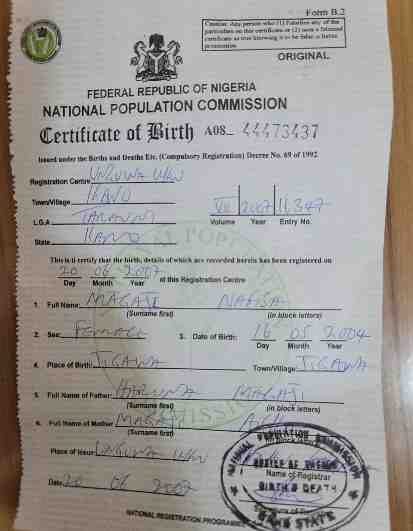 Form B.2
Caution: Any person who (1) Falsifies any of the
particulars on this certificate or (2) uses a falsified
certificate as true knowing it to be false is liable to
prosecution
ORIGINAL
FEDERAL REPUBLIC OF NIGERIA
NATIONAL POPULATION COMMISSION
Certificate of Birth A08_ 44473437
Issued under the Births and Deaths Etc. (Compulsory Registration) Decree No. 69 of 1992
Registration Centre UNGUWA UKU
Town/Village KANO
VII 2007 11,347
L.G.A TARAUNI
Volume Year Entry No.
State KANO
This is to certify that the birth, details of which are recorded herein has been registered on
20 06 2007 at this Registration Centre
Day Month Year
1. Full Name MAGAJI NAFISA
(Surname first) (in block letters)
2. Sex: FEMALE 3. Date of Birth: 16 05 2004
Day Month Year
4. Place of Birth: JIGAWA Town/Village: JIGAWA
5. Full Name of Father: HARUNA MAGAJI
(Surname first) (in block letters)
6. Full Name of Mother MAGAJI
(Surname first)
Place of Issue: UNGUWA UKU
Date 20 06 2007
NATIONAL POPULATION COMMISSION
Name of Registrar
BIRTH & DEATH
KANO STATE
NATIONAL REGISTRATION PROGRAMME